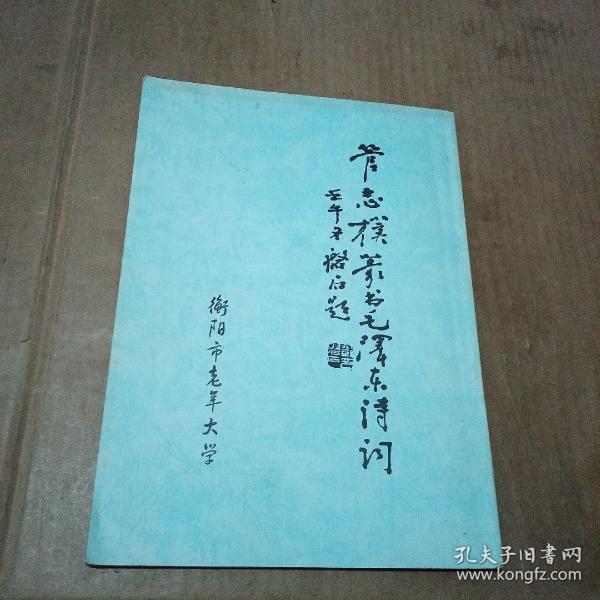 管志朴篆书毛泽东诗词
壬午
石题
衡阳市老年大学
孔夫子旧书网
www.kongfz.com